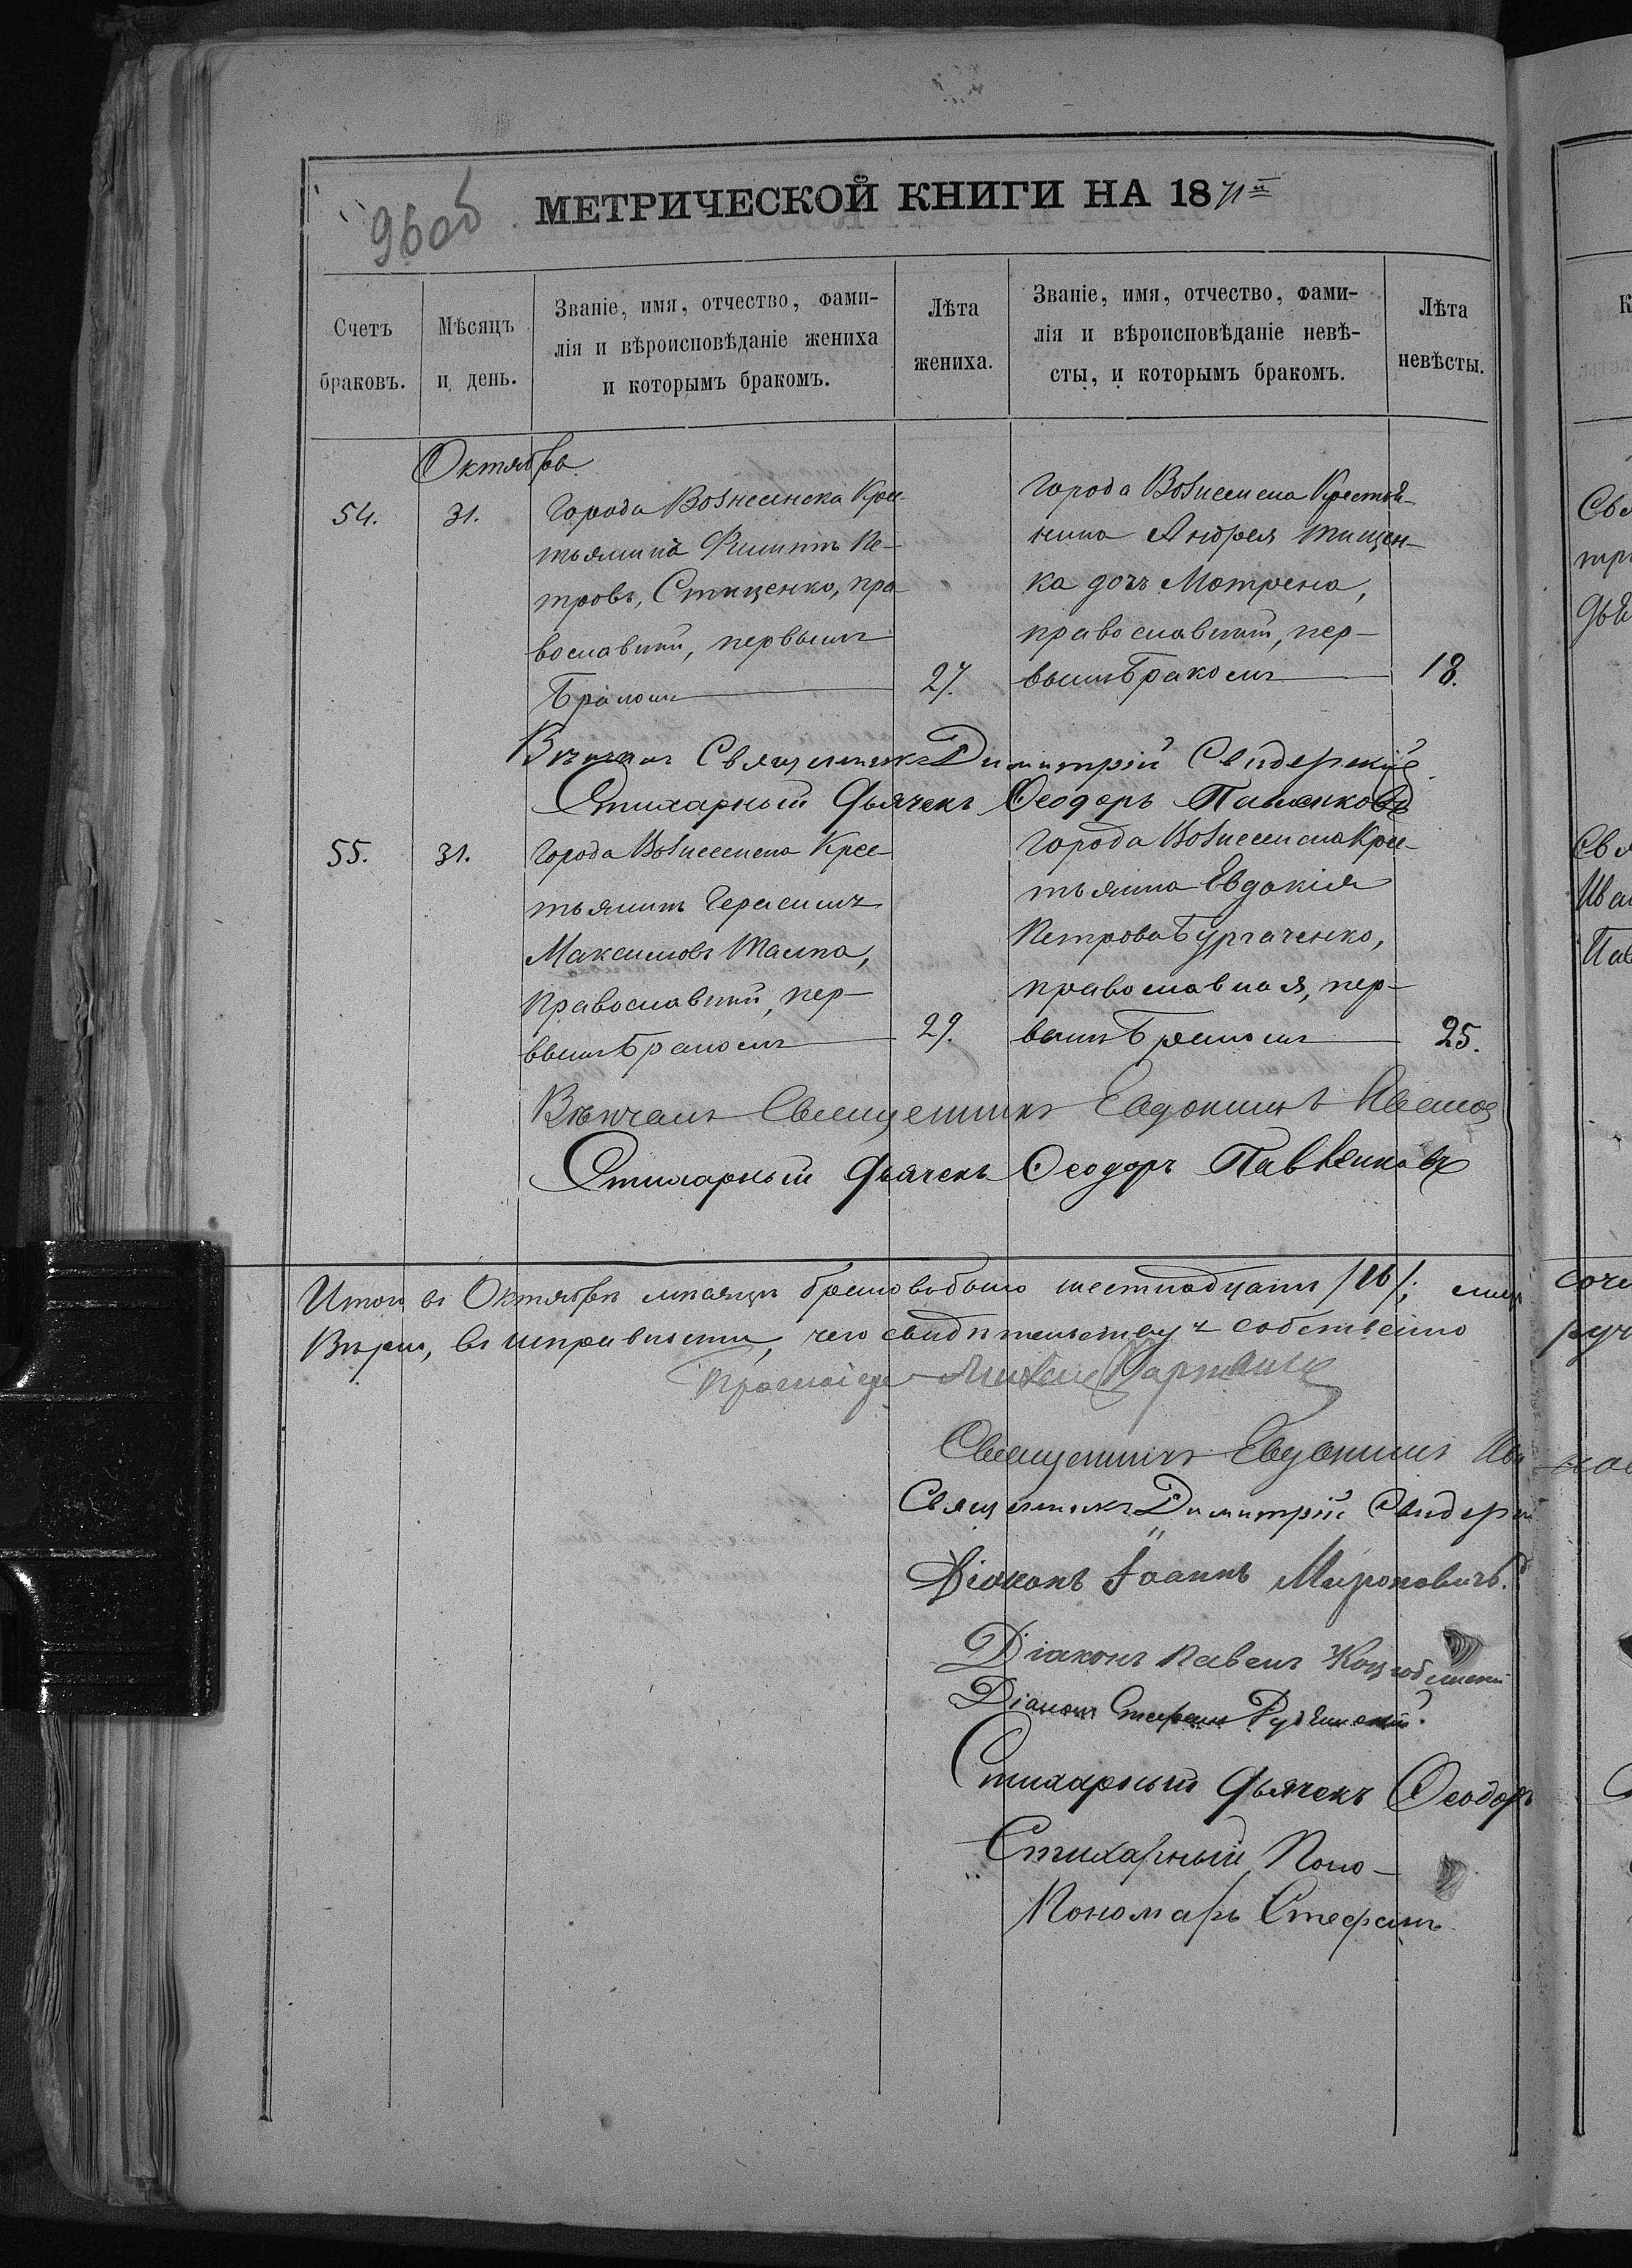 96об
МЕТРИЧЕСКОЙ КНИГИ НА 1871й
Счетъ браковъ.
Мѣсяцъ и день.
Званіе, имя, отчество, фами-
лія и вѣроисповѣданіе жениха
и которымъ бракомъ.
Лѣта жениха.
Званіе, имя, отчество, фами-
лія и вѣроисповѣданіе невѣ-
сты, и которымъ бракомъ.
Лѣта невѣсты.
Октябрь
54.
31.
Города Вознесенска Крес
тьянинъ Филиппъ Пе-
тровъ, Стиценко, пра
вославный, первымъ
бракомъ
27.
Города Вознесенска Крестья-
нина Андрея Тищен-
ка дочь Мотрена,
православный, пер-
вымъ бракомъ
18.
Вѣнчалъ Священникъ Димитрій Свидерскій
Стихарный Дьячекъ Ѳеодоръ Павленковъ
55.
31.
Города Вознесенска Крес-
тьянинъ Герасимъ
Максимовъ Талпа,
православный, пер-
вымъ бракомъ
29.
Города Вознесенска Крес-
тьянка Евдокія
Петрова Бургаченко,
православная, пер-
вымъ бракомъ
25.
Вѣнчалъ Священникъ Евдокимъ
Стихарный Дьячекъ Ѳеодоръ Павленковъ
Итого въ Октябрѣ мѣсяцѣ браковъ было шестнадцать /16/;
Вѣрно, въ исправности, чего свидѣтельствуемъ собственно
Протоіерей
Священникъ Евдокимъ Ива
Священникъ Димитрій Свидерскій
Діаконъ Іоаннъ Мироновичъ.
Діаконъ Павелъ
Діаконъ Стефанъ
Стихарный Дьячекъ Ѳеодоръ
Стихарный Поно-
Пономарь Стефанъ